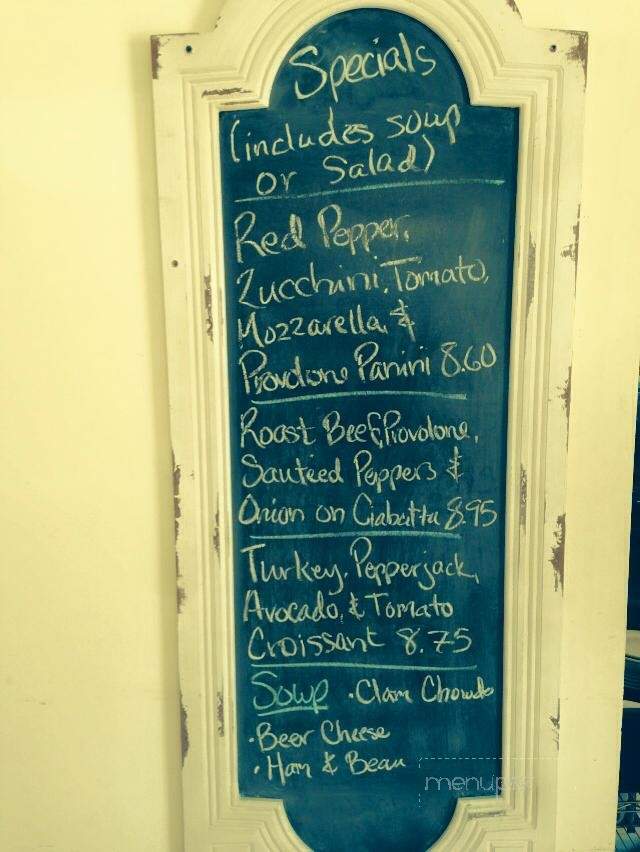 Specials
(includes soup
or Salad)
Red Pepper,
Zucchini, Tomato,
Mozzarella, &
Provolone Panini 8.60
Roast Beef, Provolone,
Sauteed Peppers &
Onion on Ciabatta 8.95
Turkey, Pepperjack,
Avocado, & Tomato
Croissant 8.75
Soup · Clam Chowder
· Beer Cheese
· Ham & Bean
menupix